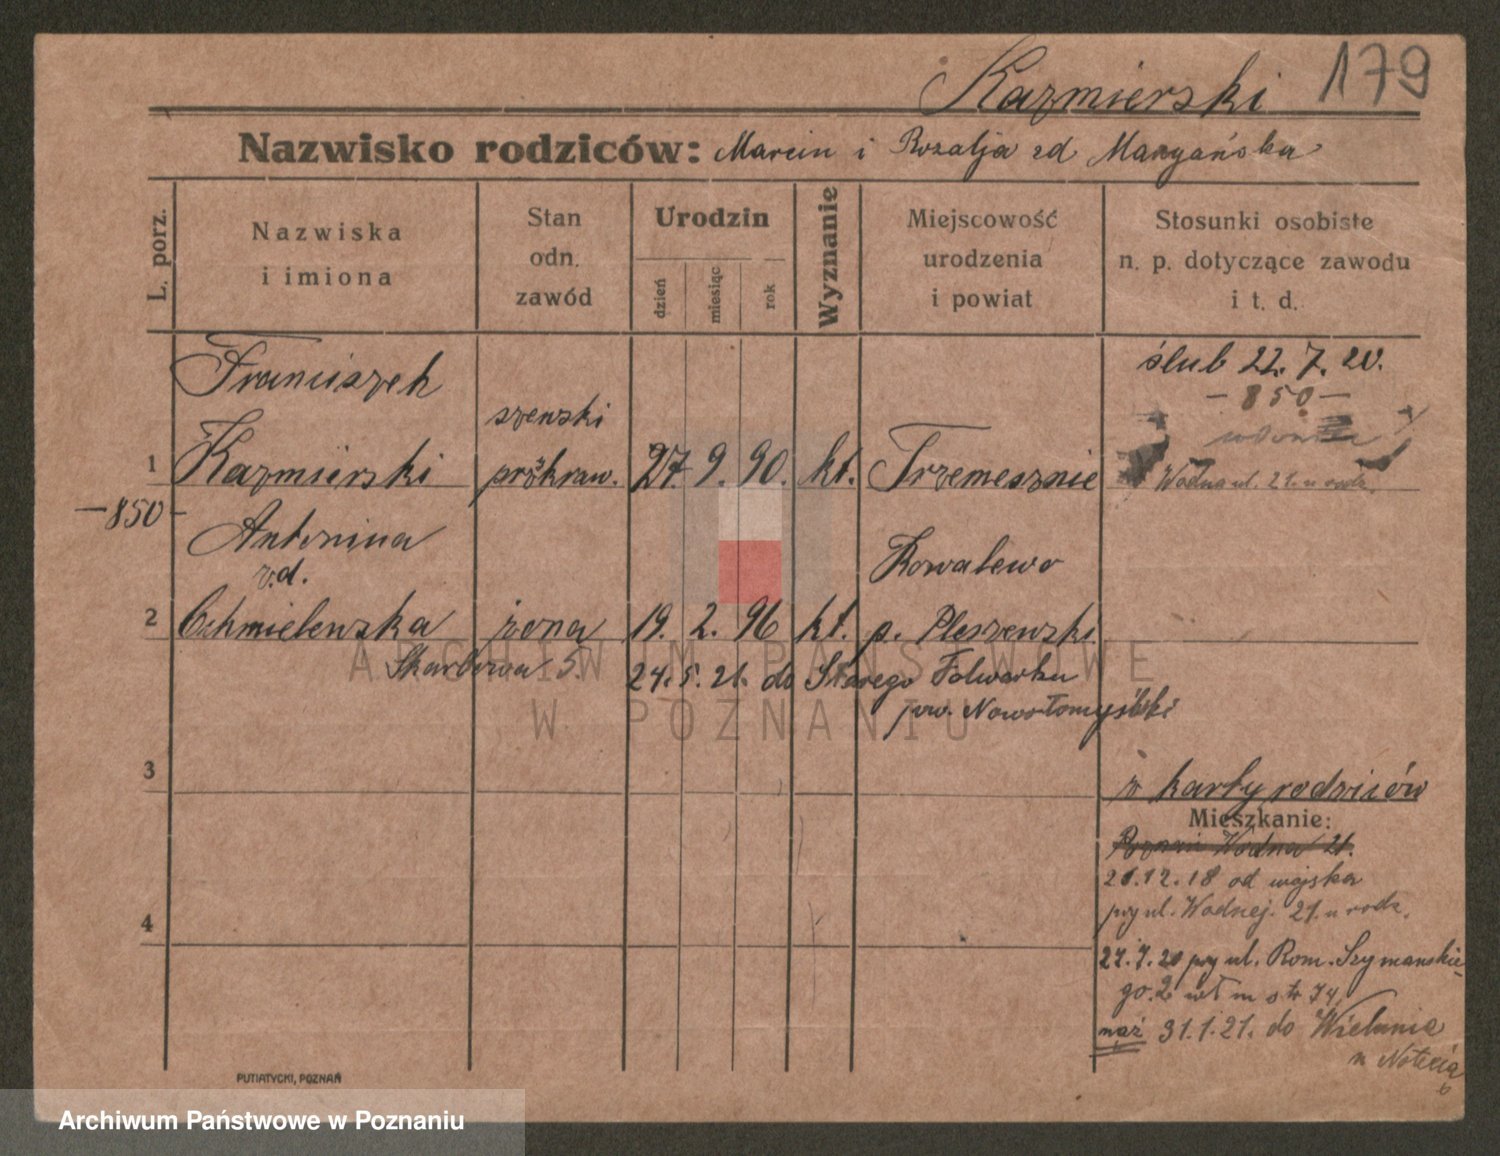 Kazmierski 179
Nazwisko rodziców: Marcin i Rozalja zd Margańska
L. porz.
Nazwiska
i imiona
Stan
odn.
zawód
Urodzin
dzień
miesiąc
rok
Wyznanie
Miejscowość
urodzenia
i powiat
Stosunki osobiste
n. p. dotyczące zawodu
i t. d.
Franciszek
ślub 22. 7. 20.
- 850 -
szewski
1 Kazmierski 27. 9. 90. kt. Trzemesznie
Wodna ul. 21. u rodz.
- 850 -
Antonina
z.d.
Kowalewo
2 Chmielewska żona 19. 2. 96 kt. p. Pleszewski
Skarbowa 5. 24. 5. 21. do Starego Folwarku
pow. Nowotomyślski
3
z karty rodziców
Mieszkanie:
Poznań Wodna 21.
21.12.18 od wojska
przy ul. Wodnej. 21. u rodz.
4
27.7.20 przy ul. Rom. Szymańskie-
go. 2
mąż 31.1.21. do Wielunia
n Notecią
PUTIATYCKI, POZNAŃ
ARCHIWUM PAŃSTWOWE
W POZNANIU
Archiwum Państwowe w Poznaniu